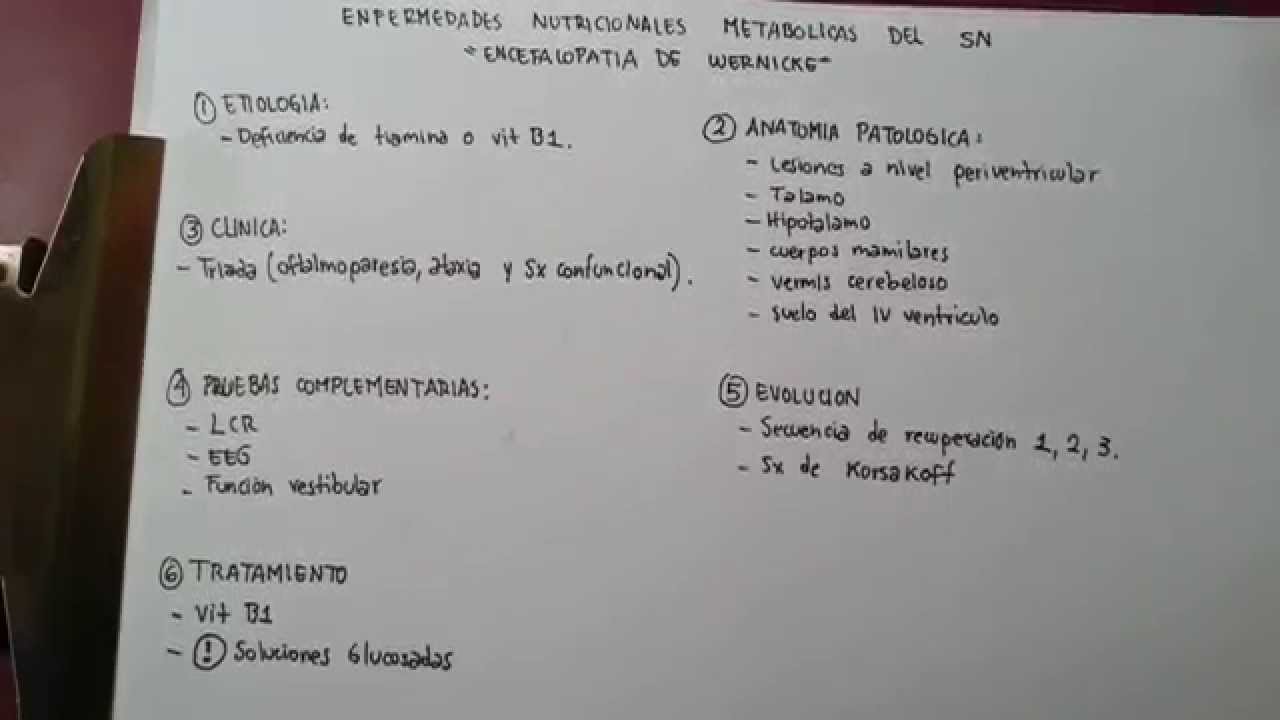 ENFERMEDADES NUTRICIONALES METABOLICAS DEL SN
"ENCEFALOPATIA DE WERNICKE"
① ETIOLOGIA:
- Deficiencia de tiamina o vit B1.
② ANATOMIA PATOLOGICA:
- Lesiones a nivel periventricular
- Talamo
- Hipotalamo
- cuerpos mamilares
- vermis cerebeloso
- suelo del IV ventriculo
③ CLINICA:
- Triada (oftalmoparesia, ataxia y Sx confuncional).
④ PRUEBAS COMPLEMENTARIAS:
- LCR
- EEG
- Función vestibular
⑤ EVOLUCION
- Secuencia de recuperación 1, 2, 3.
- Sx de Korsakoff
⑥ TRATAMIENTO
- Vit B1
- (!) Soluciones Glucosadas